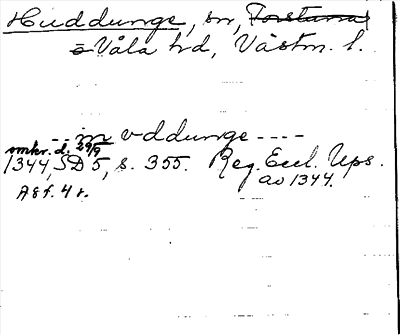 Huddunge, sn, Torstuna
o Våla hd, Västm. l.
-- in vddunge ----
omkr. d. 29/9
1344, SD 5, s. 355. Reg. Eccl. Ups.
av 1344.
A 8 f. 4 r.